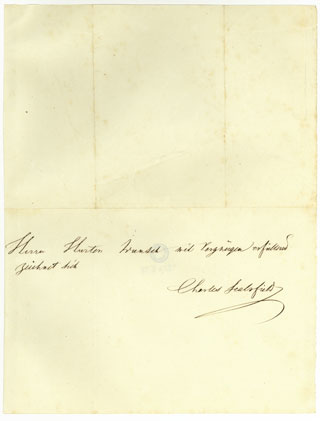 Herrn Hurten Wunsch mit Vergnügen erfüllend
zeichnet sich
Charles Sealsfield